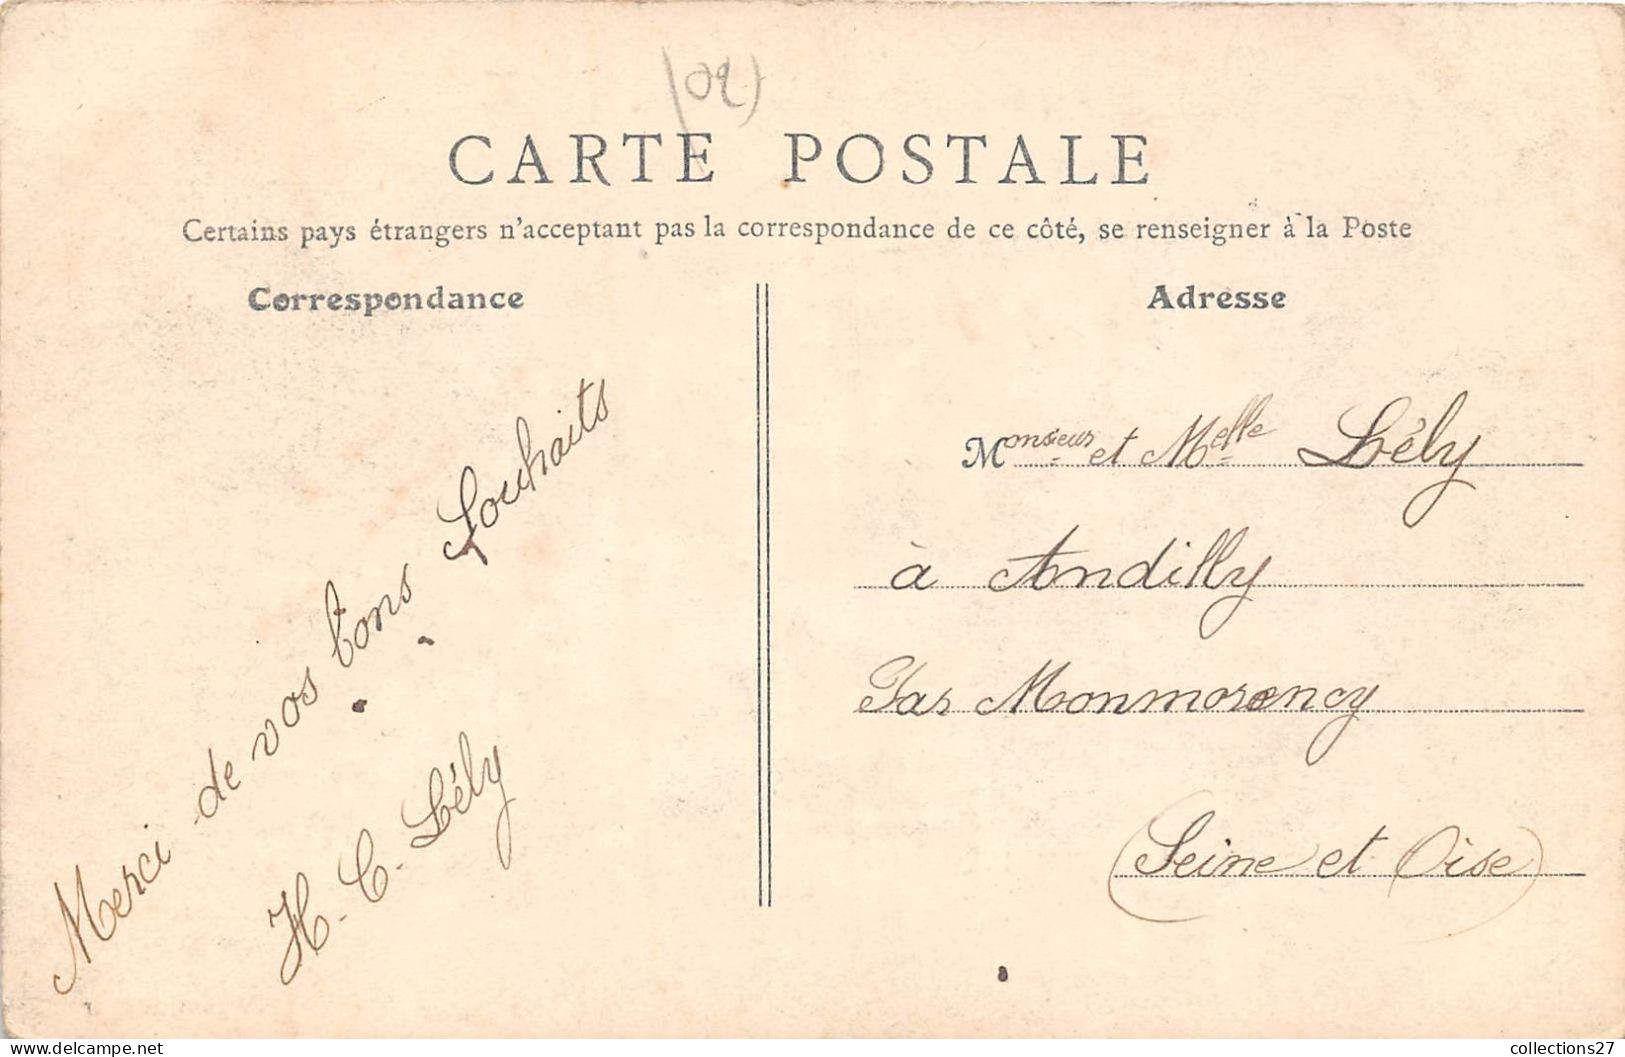 (02)
CARTE POSTALE
Certains pays étrangers n'acceptant pas la correspondance de ce côté, se renseigner à la Poste
Correspondance
Merci de vos bons Souhaits
H. C. Lély
Adresse
Monsieur et Melle Lély
à Andilly
Par Monmorency
(Seine et Oise)
collections27